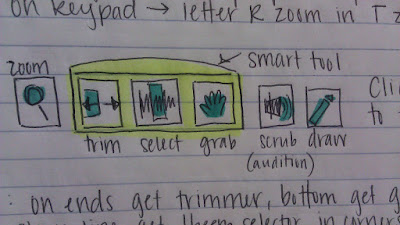 on keypad → letter R zoom in T z
smart tool
zoom
Cli
to
trim select grab scrub draw
(audition)
: on ends get trimmer, bottom get g
get them selector in corners